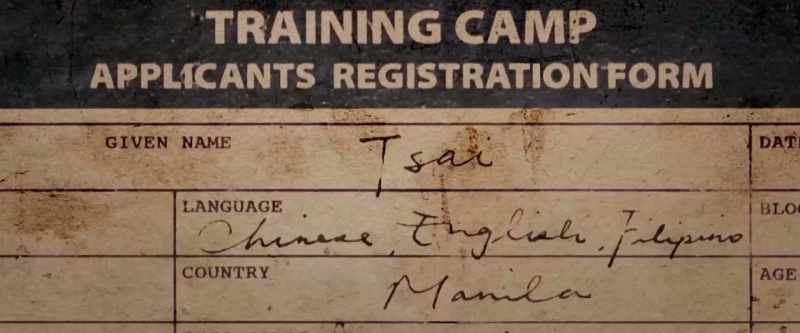 TRAINING CAMP
APPLICANTS REGISTRATION FORM
GIVEN NAME Tsai
LANGUAGE
Chinese, English, Filipino
COUNTRY
Manila
AGE